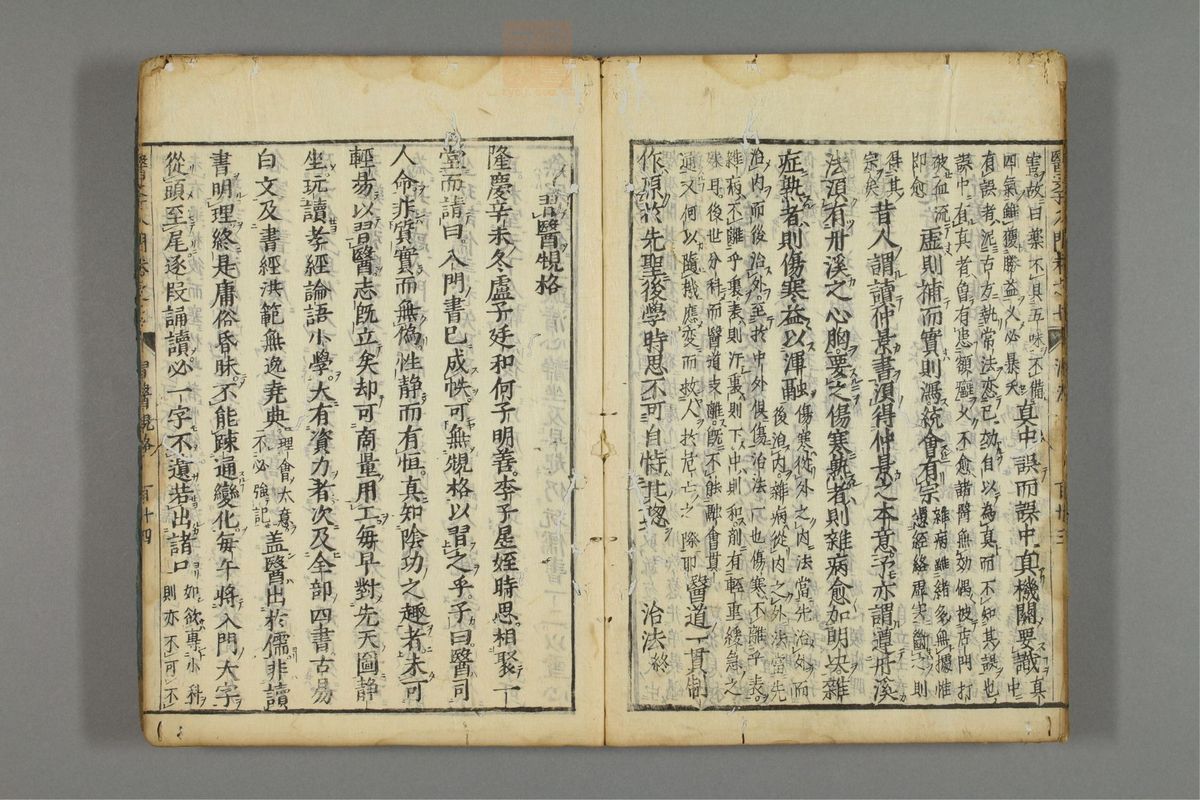 害故曰藥不具五味不備
四氣雖獲勝益久必暴夭
真中誤而誤中真機關要識
真中
有誤者泥古方執常法亦已効自以為真而不知其誤也
誤中有真者曽有患額癬久不愈諸醫無効偶被店門打
破血流
即愈
虛則補而實則瀉統會有宗
雜病雖緒多無據惟
憑經絡虛实斷之則
得其
宗矣
昔人謂讀仲景書須得仲景之本意予亦謂遵丹溪
法須有丹溪之心胸要之傷寒熟者則雜病愈如明决雜
症熟者則傷寒益以渾融
傷寒從外之内法當先治外而
後治内雜病從内之外法當先
治内而後治外至扵中外俱傷治法一也傷寒不離乎表
雜病不離乎裏表則汗裏則下中則和劑有輕重緩急之
殊耳後世分科而醫道支離既不能融會貫
通又何以隨機應变而救人扵危亡之際耶
醫道一貫制
作原於先聖後學時思不可自恃其聦
治法終
習醫䂓格
隆慶辛未冬盧子廷和何子明善李子星姪時思相聚一
堂而請曰入門書已成帙可無䂓格以習之乎子曰醫司
人命非質實而無偽性静而有恒真知陰功之趣者未可
輕易以習醫志旣立矣却可商量用工毎早對先天圖静
坐玩讀孝經論語小學大有資力者次及全部四書古易
白文及書經洪範無逸堯典
理會大意
不必強記
盖醫出於儒非讀
書明理終是庸俗昏昧不能踈通變化毎午將入門大字
從頭至尾逐段誦讀必一字不遺若出諸口
如欲專小科
則亦不可不
習醫䂓格
百十四